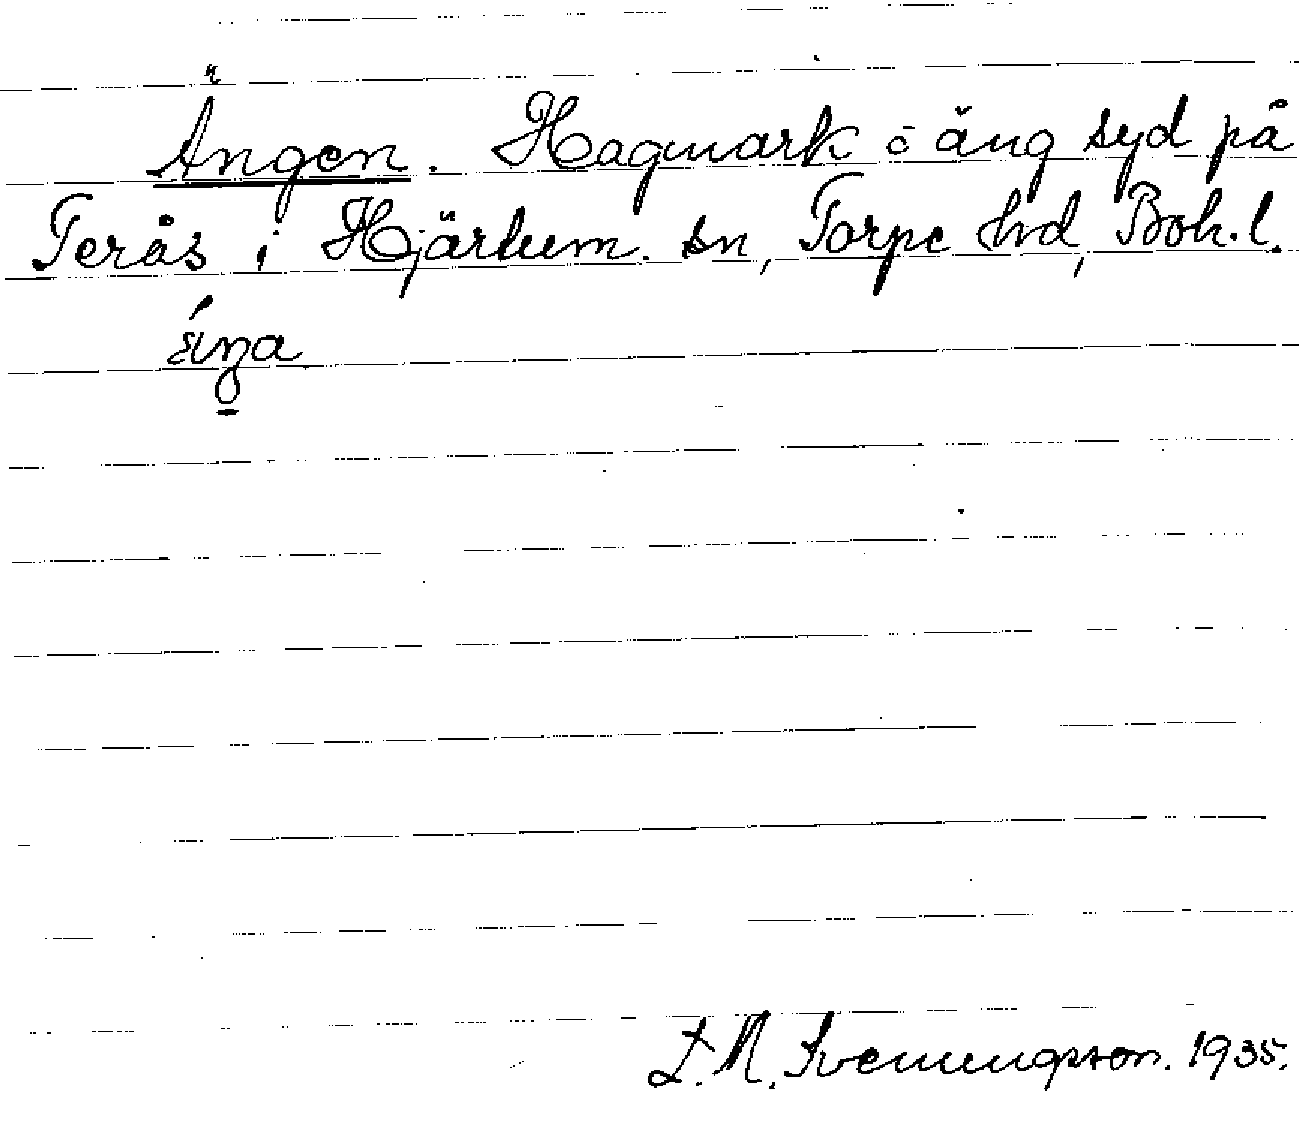 Ängen. Hagmark o äng syd på
Terås i Hjärtum sn, Torpe hd, Boh. l.
äŋa
L. M. Svenungsson. 1935.